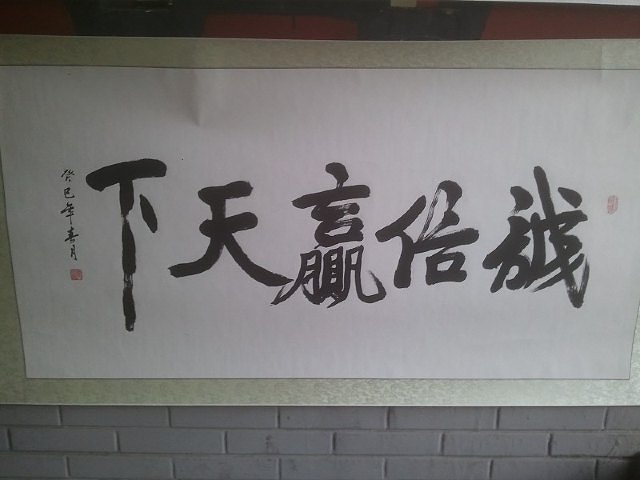 誠信贏天下
癸巳年春月